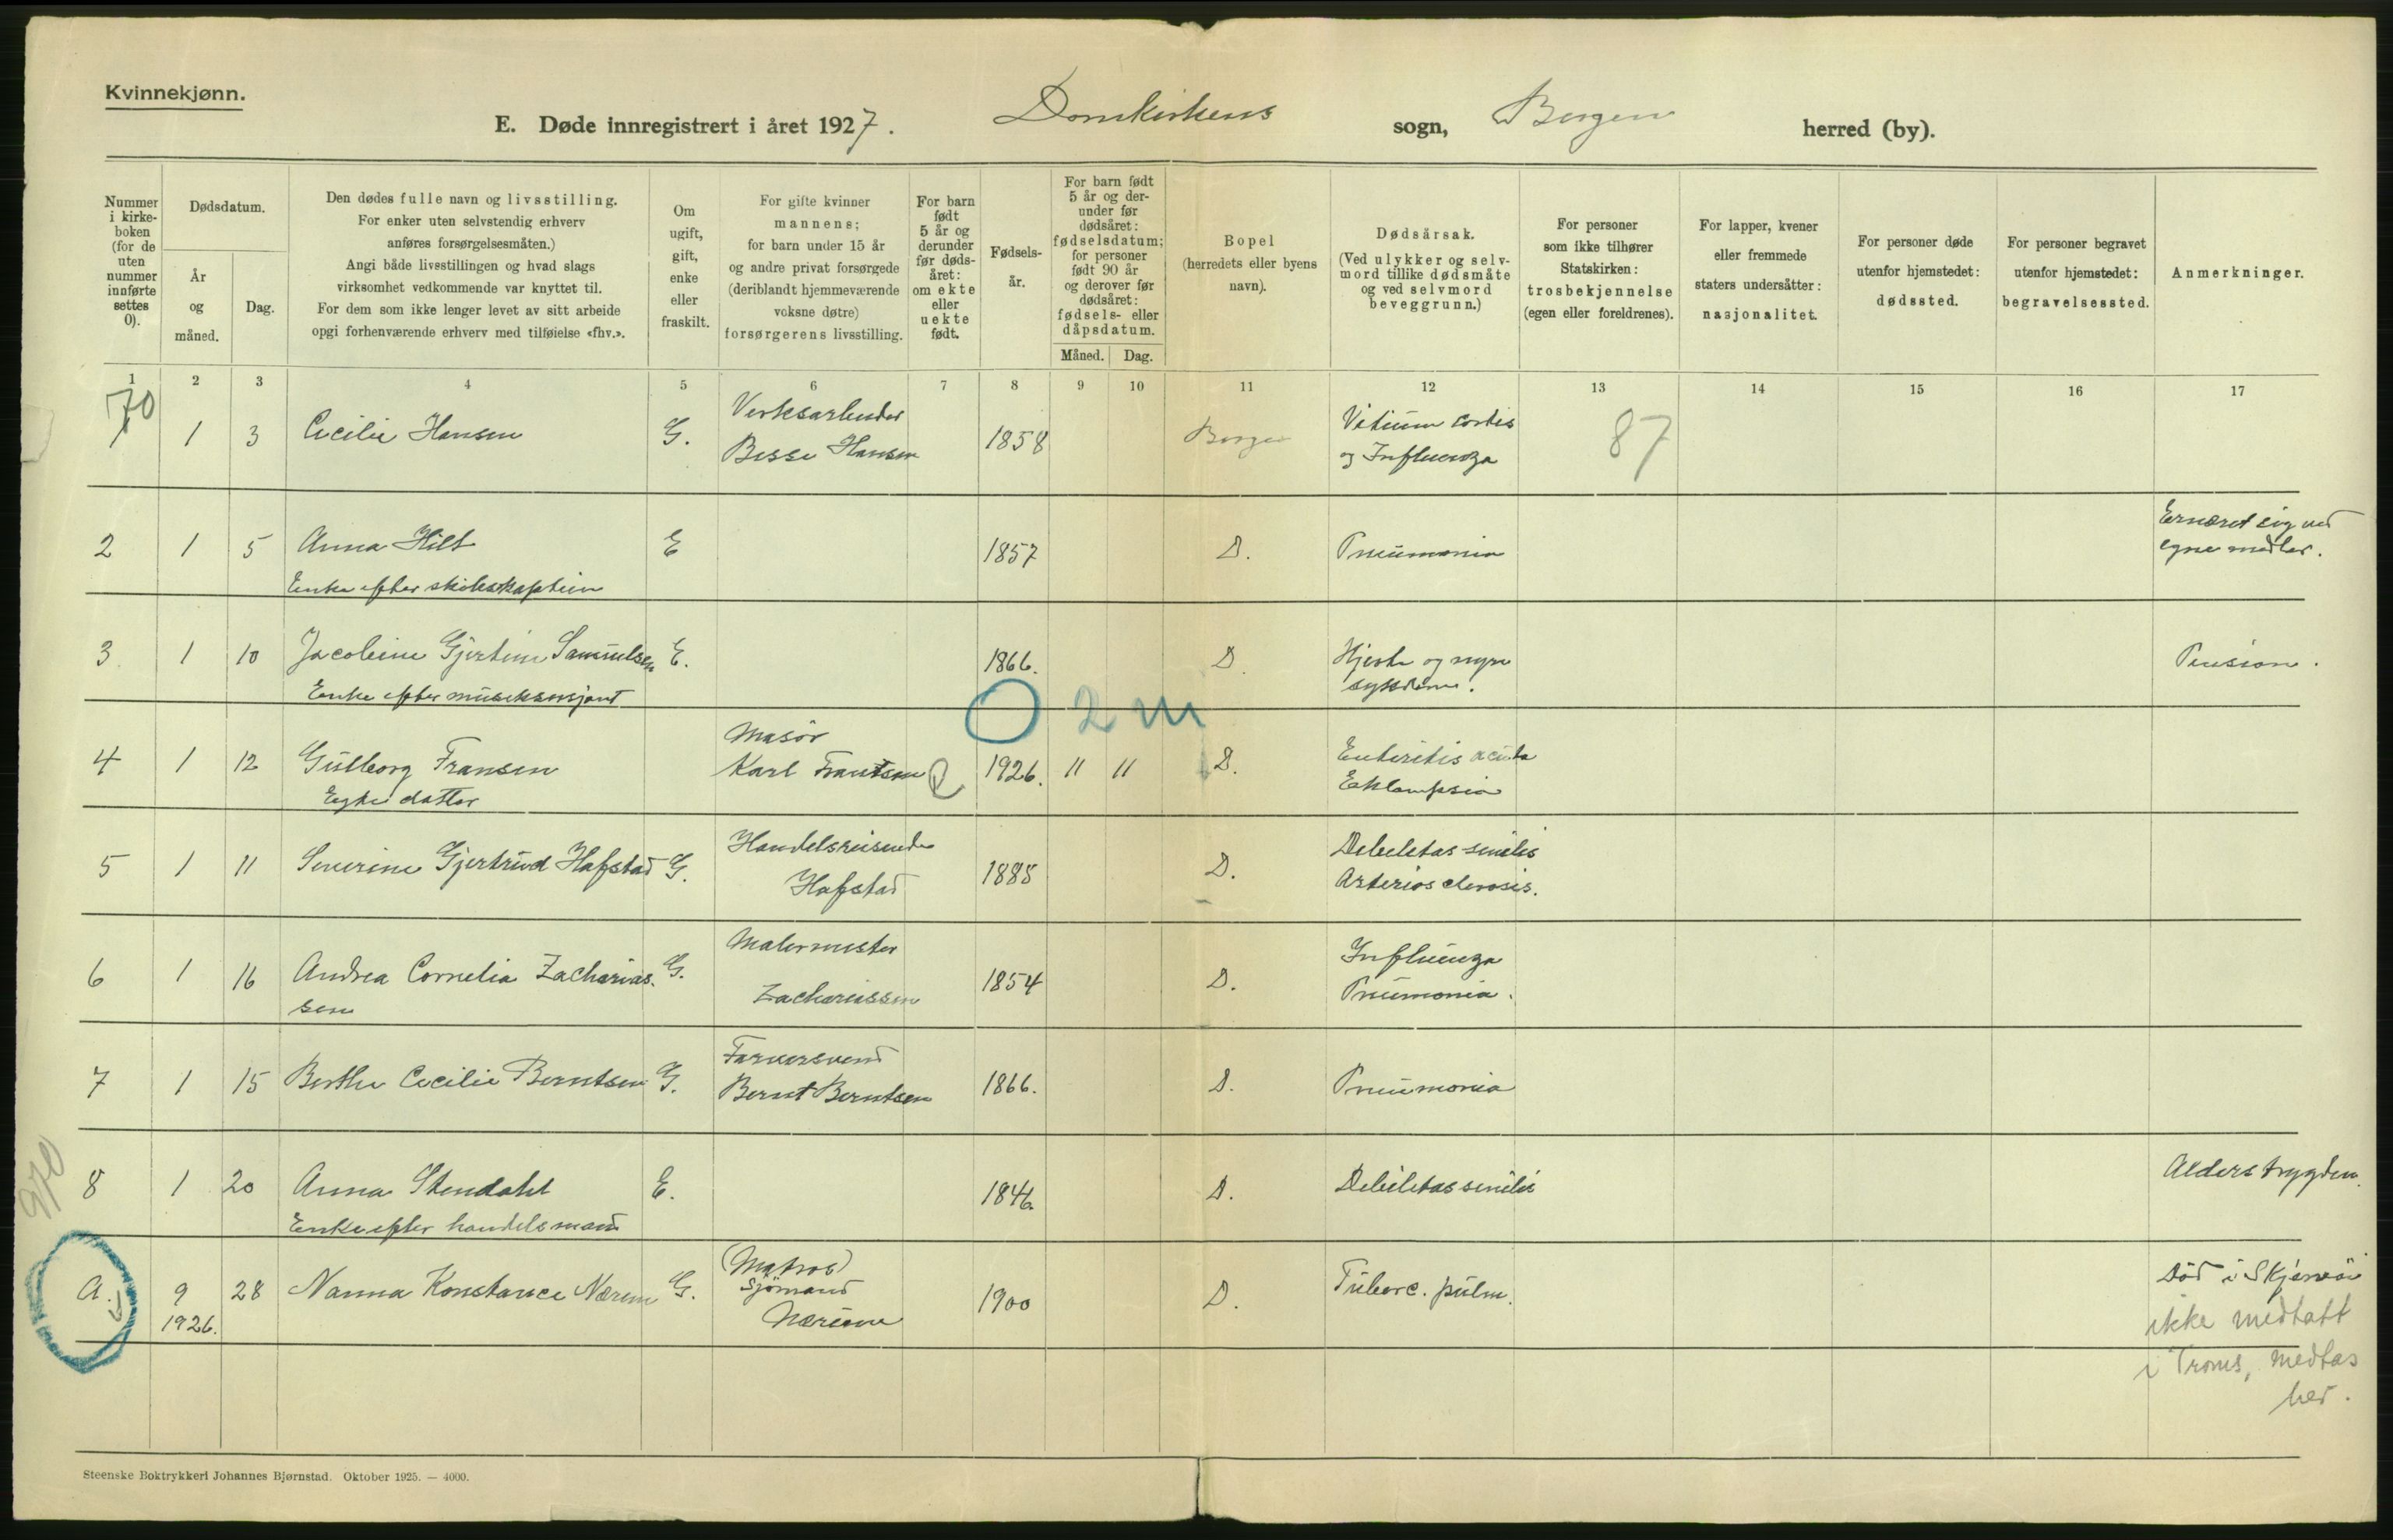 Kvinnekjønn.
E. Døde innregistrert i året 1927. Domkirkens sogn, Bergen herred (by).
Nummer i kirke-boken (for de uten nummer innførte settes 0).
Dødsdatum.
År og måned.
Dag.
Den dødes fulle navn og livsstilling.
For enker uten selvstendig erhverv
anføres forsørgelsesmåten.)
Angi både livsstillingen og hvad slags
virksomhet vedkommende var knyttet til.
For dem som ikke lenger levet av sitt arbeide
opgi forhenværende erhverv med tilføielse «fhv.».
Om ugift, gift, enke eller fraskilt.
For gifte kvinner
mannens;
for barn under 15 år
og andre privat forsørgede
(deriblandt hjemmeværende
voksne døtre)
forsørgerens livsstilling.
For barn født 5 år og derunder før døds-året: om ekte eller uekte født.
Fødsels-år.
For barn født 5 år og der-under før dødsåret: fødselsdatum; for personer født 90 år og derover før dødsåret: fødsels- eller dåpsdatum.
Måned. Dag.
Bopel
(herredets eller byens
navn).
Dødsårsak.
(Ved ulykker og selv-
mord tillike dødsmåte
og ved selvmord
beveggrunn.)
For personer
som ikke tilhører
Statskirken:
trosbekjennelse
(egen eller foreldrenes).
For lapper, kvener
eller fremmede
staters undersåtter:
nasjonalitet.
For personer døde
utenfor hjemstedet:
dødssted.
For personer begravet
utenfor hjemstedet:
begravelsessted.
Anmerkninger.
1 2 3 4 5 6 7 8 9 10 11 12 13 14 15 16 17
70
1 1 3 Cecilie Hansen G. Verksarbeider 1858 Bergen Vitium cordis 87
Besse Hansen og Influenza
2 1 5 Anna Hilt E 1857 D. Pneumonia Ernæret sig ved
Enke efter skibskaptein egne midler.
3. 1 10 Jacobine Gjertine Samuelsen E. 1866. D. Hjerte og nyre Pension.
Enke efter musiksersjant sygdom.
O 2 m
4 1 12 Gulborg Fransen Masör 1926. 11 11 D. Enteritis acuta
Egte datter Karl Frantsen Eklampsia
5 1 11 Severine Gjertrud Hafstad G. Handelsreisende 1885 D. Debilitas senilis
Hafstad Arteriosclerosis.
6 1 16 Andrea Cornelia Zacharias- G. Malermester 1854 D. Influenza
sen Zachariassen Pneumonia.
7 1 15 Berthe Cecilie Berntsen G. Farversvend 1866. D. Pneumonia
Bernt Berntsen
8 1 20 Anna Stendahl E. 1846 D. Debilitas senilis Alderstrygden.
Enke efter handelsmand
970
A. 9 28 Nanna Konstance Nærum G. (Matros) 1900 D. Tuberc. pulm. Död i Skjervöi
1926. Sjömand ikke medtatt
i Troms, medtas
her.
Steenske Boktrykkeri Johannes Bjørnstad. Oktober 1925. — 4000.